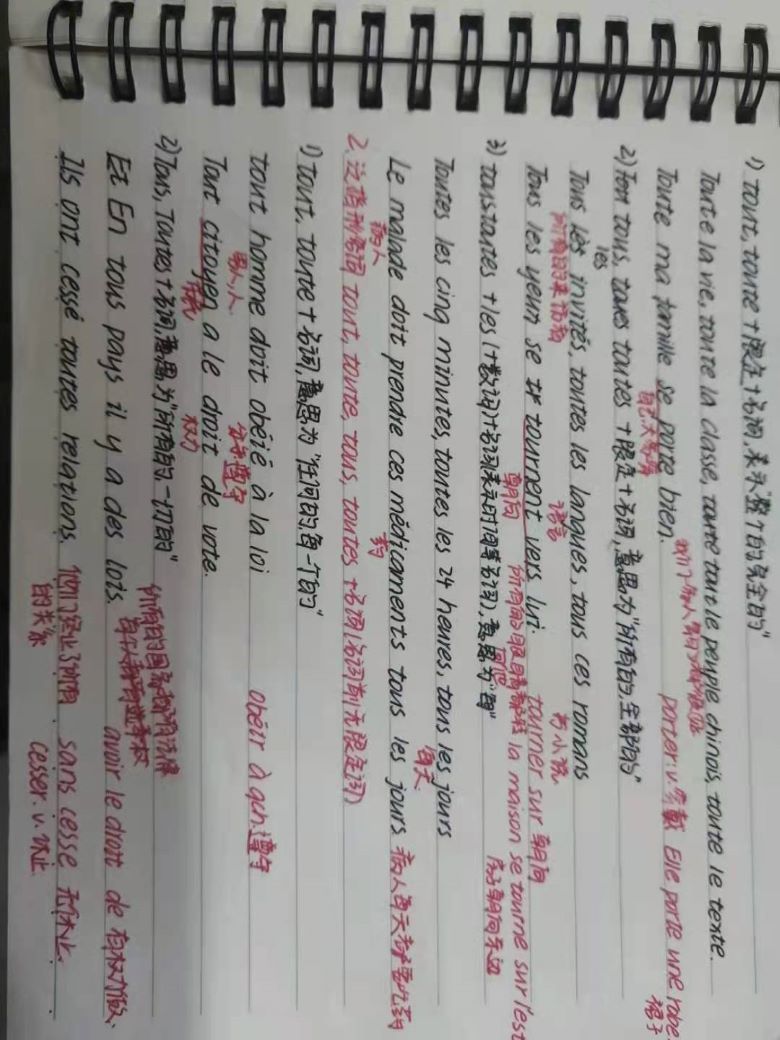 1) tout, toute + 限定 + 名词, 表示整个的, 完全的"
Toute la vie, toute la classe, toute tout le peuple chinois, toute le texte.
Toute ma famille se porte bien. porter: v. 穿戴 Elle porte une robe.
裙子
2) tous, toutes + 限定 + 名词, 意思为"所有的, 全部的"
les
Tous les invités, toutes les langues, tous ces romans
语言 为小说
Tous les yeux se tournent vers lui. tourner sur 朝向
朝向 la maison se tourne sur l'est
房子朝向东边
3) tous toutes + les (+数词) + 名词 意思为"每"
Toutes les cinq minutes, toutes les 24 heures, tous les jours
每天
Le malade doit prendre ces médicaments tous les jours 病人每天都要吃药
病人 药
2. 泛指形容词 tout, toute, tous, toutes + 名词 (名词前无限定词)
1) tout, toute + 名词, 意思为 "任何的, 每一个的"
tout homme doit obéié à la loi obéir à qch 遵守
遵守
Tout citoyen a le droit de vote.
权力
2) Tous, Toutes + 名词, 意思为"所有的, 一切的"
Ez En tous pays il y a des lois. avoir le droit de 有权力做
Ils ont cessé toutes relations. sans cesse 无休止
的关系 cesser. v. 停止